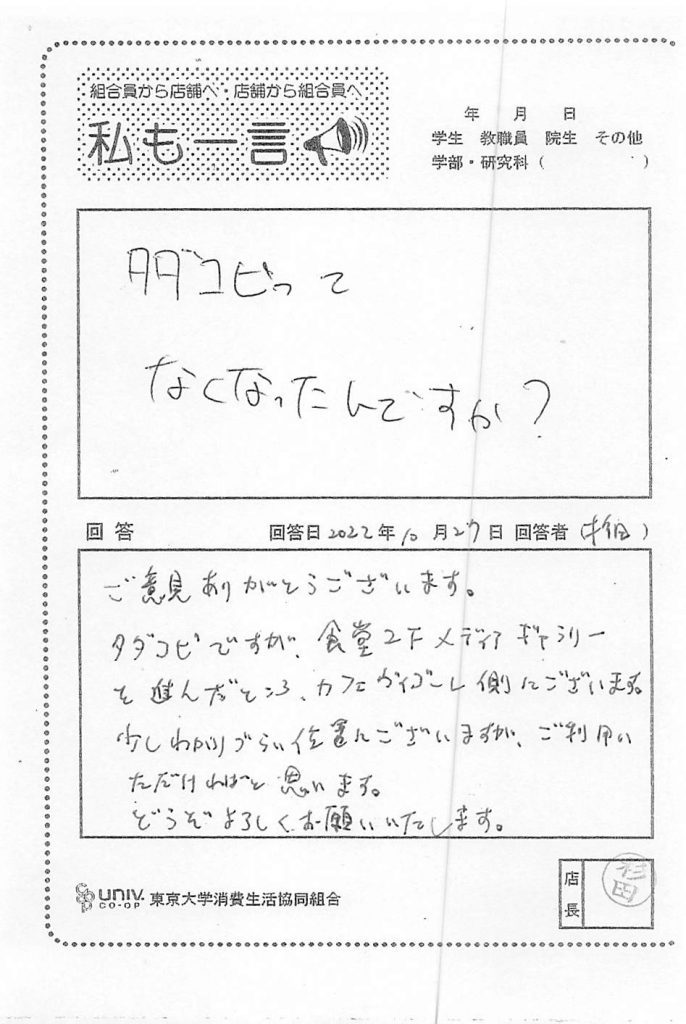 組合員から店舗へ・店舗から組合員へ
私も一言
年 月 日
学生 教職員 院生 その他
学部・研究科( )
タダコピって
なくなったんですか?
回答 回答日 2022年10月27日 回答者( )
ご意見ありがとうございます。
タダコピですが、食堂2Fメディアギャラリー
を進んだところ、カフェ側にございます。
少しわかりづらい位置にございますが、ご利用い
ただければと思います。
どうぞよろしくお願いいたします。
UNIV. CO-OP 東京大学消費生活協同組合
店長
杉田